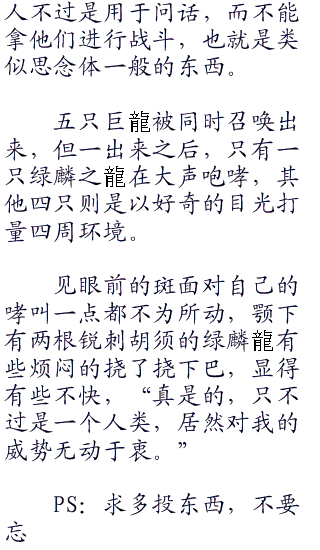 人不过是用于问话，而不能
拿他们进行战斗，也就是类
似思念体一般的东西。
五只巨龍被同时召唤出
来，但一出来之后，只有一
只绿麟之龍在大声咆哮，其
他四只则是以好奇的目光打
量四周环境。
见眼前的斑面对自己的
哮叫一点都不为所动，颚下
有两根锐刺胡须的绿麟龍有
些烦闷的挠了挠下巴，显得
有些不快，“真是的，只不
过是一个人类，居然对我的
威势无动于衷。”
PS：求多投东西，不要
忘